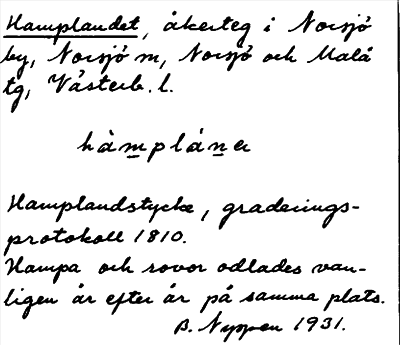 Hamplandet, åkerteg i Norsjö
by, Norsjö sn, Norsjö och Malå
tg, Västerb. l.
hàmpláner
Hamplandstycke, graderings-
protokoll 1810.
Hampa och rovor odlades van-
ligen år efter år på samma plats.
B. Nyppen 1931.